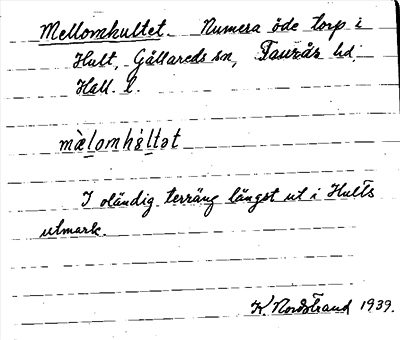 Mellomhultet. Numera öde torp i
Hult, Gällareds sn, Faurås hd,
Hall. l.
mèlomhúltət
I oländig terräng längst ut i Hults
utmark.
K. Nordstrand 1939.